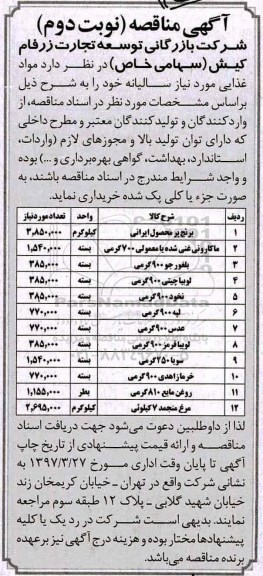 آگهی مناقصه (نوبت دوم)
شرکت بازرگانی توسعه تجارت زرفام
کیش (سهامی خاص) در نظر دارد مواد
غذایی مورد نیاز سالیانه خود را به شرح ذیل
براساس مشخصات مورد نظر در اسناد مناقصه، از
واردکنندگان و تولیدکنندگان معتبر و مطرح داخلی
که دارای توان تولید بالا و مجوزهای لازم (واردات،
استاندارد، بهداشت، گواهی بهره‌برداری و ...) بوده
و واجد شرایط مندرج در اسناد مناقصه باشند، به
صورت جزء یا کلی پک شده خریداری نماید.
ردیف شرح کالا واحد تعداد مورد نیاز
۱ برنج پر محصول ایرانی کیلوگرم ۳،۸۵۰،۰۰۰
۲ ماکارونی غنی شده یا معمولی ۷۰۰ گرمی بسته ۱،۵۴۰،۰۰۰
۳ بلغور جو ۹۰۰ گرمی بسته ۳۸۵،۰۰۰
۴ لوبیا چیتی ۹۰۰ گرمی بسته ۳۸۵،۰۰۰
۵ نخود ۹۰۰ گرمی بسته ۳۸۵،۰۰۰
۶ لپه ۹۰۰ گرمی بسته ۷۷۰،۰۰۰
۷ عدس ۹۰۰ گرمی بسته ۷۷۰،۰۰۰
۸ لوبیا قرمز ۹۰۰ گرمی بسته ۳۸۵،۰۰۰
۹ سویا ۲۵۰ گرمی بسته ۱،۵۴۰،۰۰۰
۱۰ خرما زاهدی ۹۰۰ گرمی بسته ۷۷۰،۰۰۰
۱۱ روغن مایع ۸۱۰ گرمی بطر ۱،۱۵۵،۰۰۰
۱۲ مرغ منجمد ۷ کیلوئی کیلوگرم ۲،۶۹۵،۰۰۰
لذا از داوطلبین دعوت می‌شود جهت دریافت اسناد
مناقصه و ارائه قیمت پیشنهادی از تاریخ چاپ
آگهی تا پایان وقت اداری مورخ ۱۳۹۷/۳/۲۷ به
نشانی شرکت واقع در تهران - خیابان کریمخان زند
خیابان شهید گلابی - پلاک ۱۲ طبقه سوم مراجعه
نمایند. بدیهی است شرکت در رد یک یا کلیه
پیشنهادها مختار بوده و هزینه درج آگهی نیز بر عهده
برنده مناقصه می‌باشد.